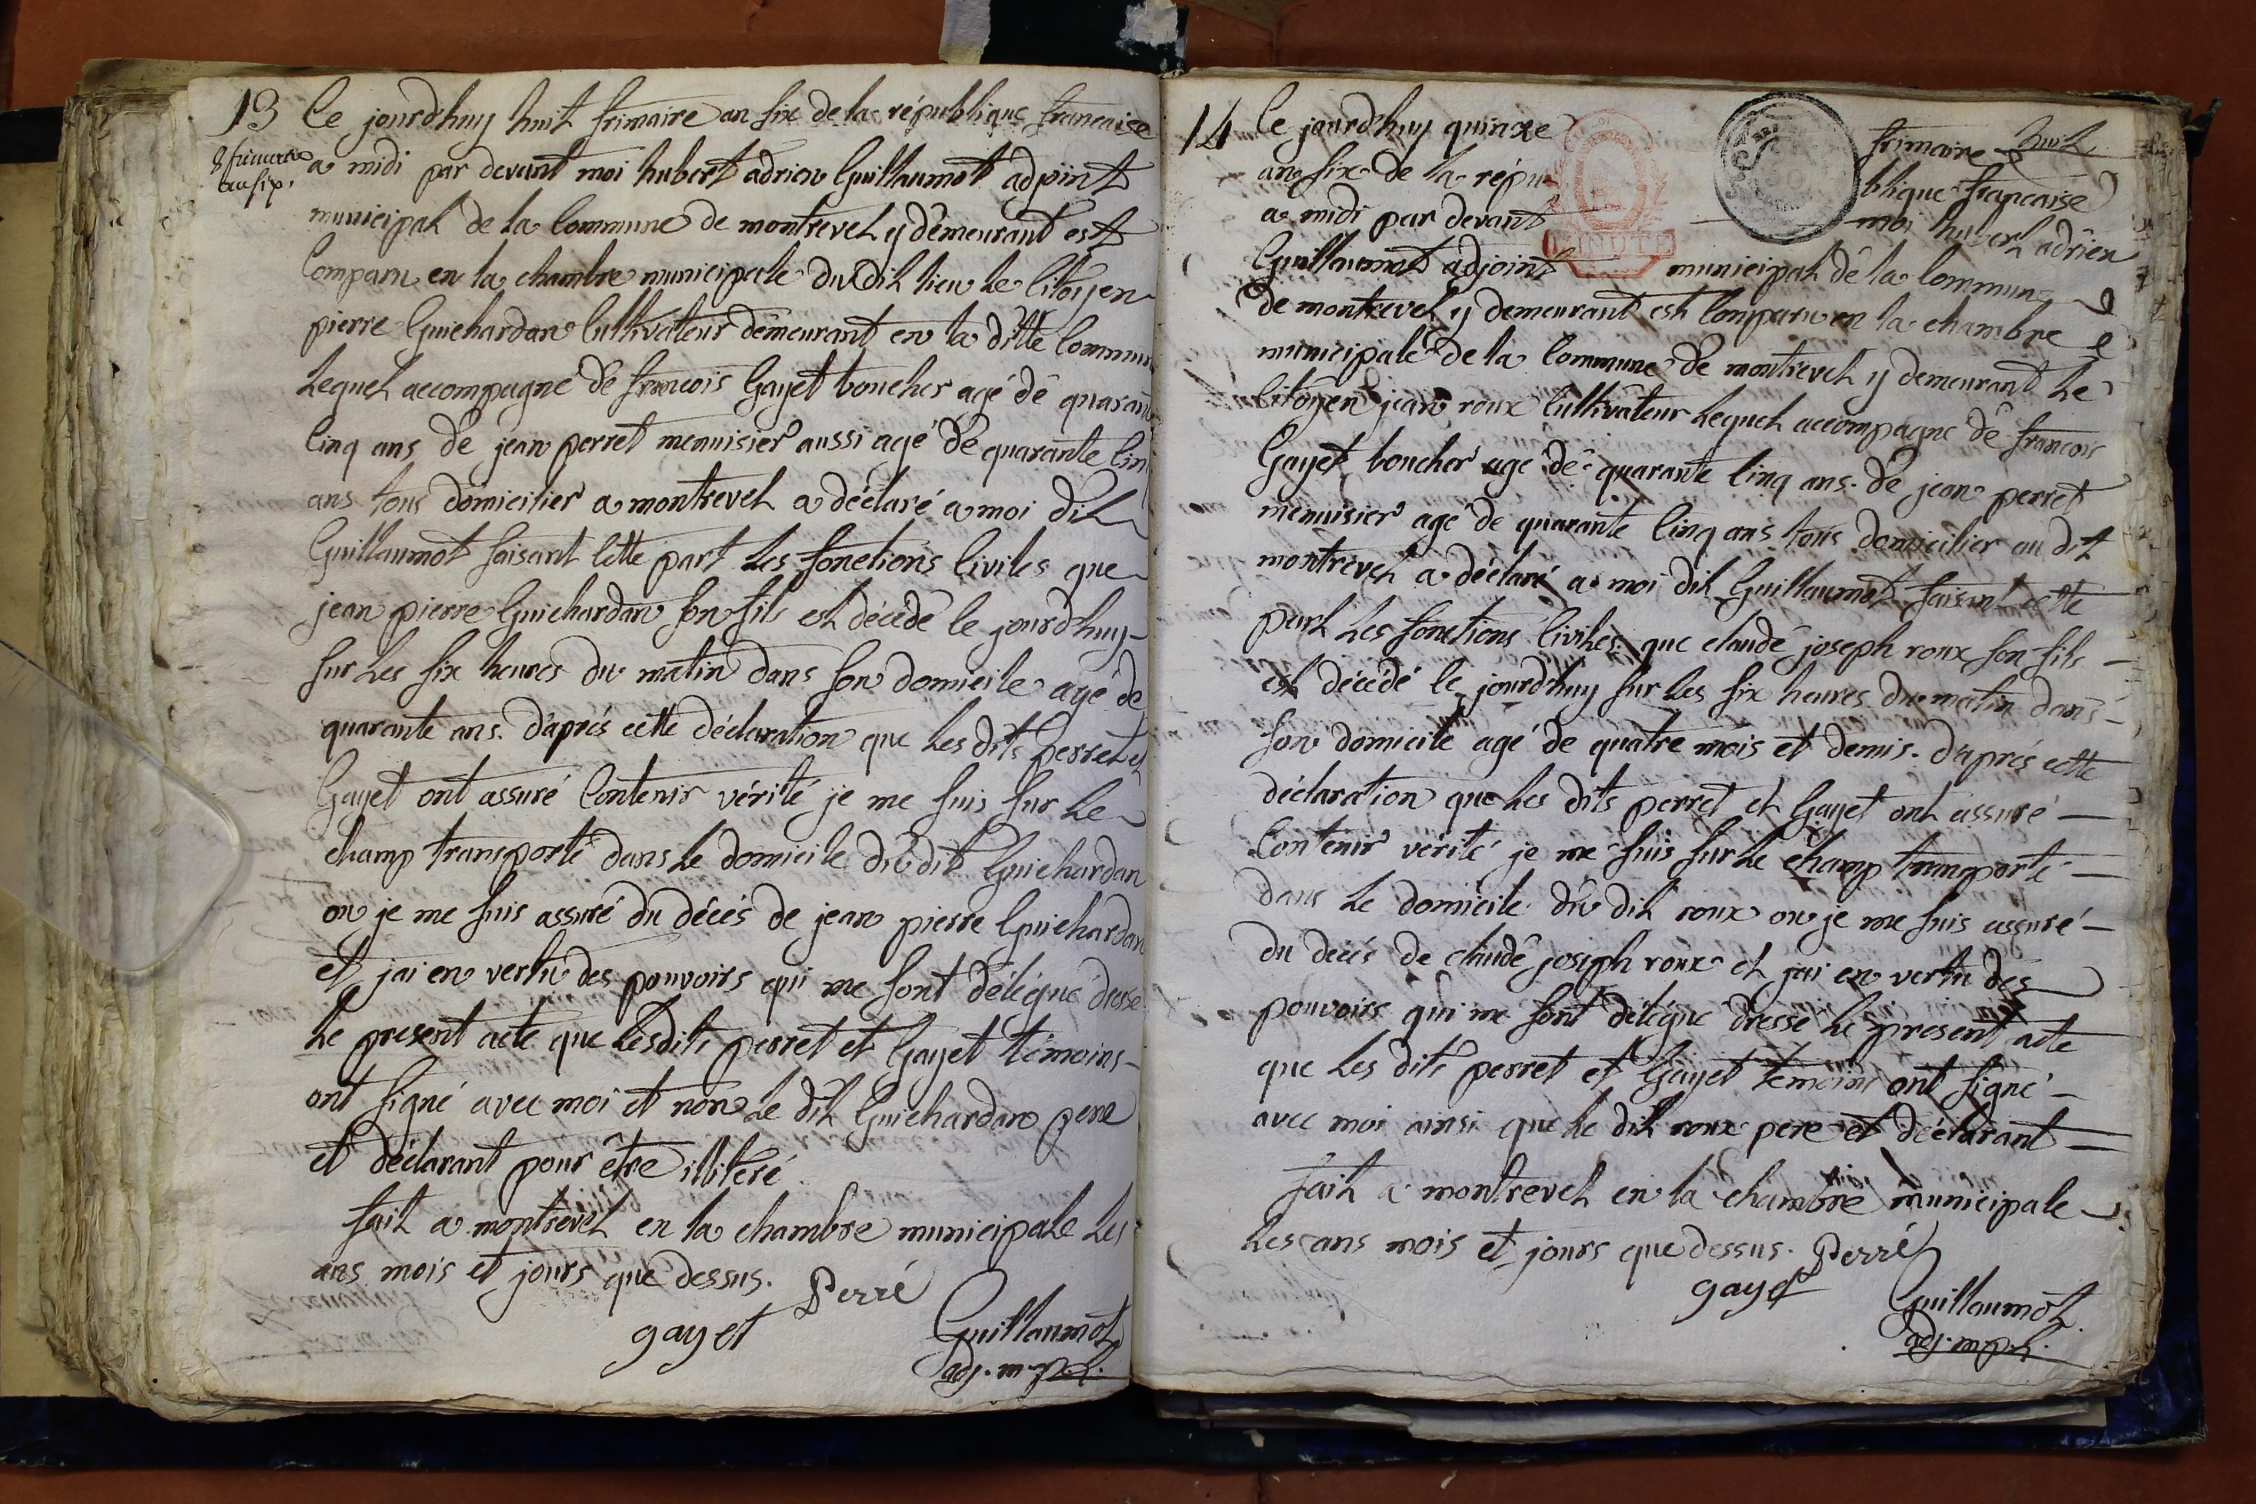 13
8 frimaire
an six.
Ce jourdhuy huit frimaire an six de la république francaise
a midi par devant moi hubert adrien Guillaumot adjoint
municipal de la Commune de montrevel y démeurant est
Comparu en la chambre municipale du dit lieu le Citoyen
pierre Guichardan Cultivateur démeurant en la ditte Commune
Lequel accompagné dê francois Gayet boucher agé dê quarante
Cinq ans de jean perret menuisier aussi agé de quarante Cinq
ans tous domicilier a montrevel a déclaré a moi dit
Guillaumot faisant Cette part les fonctions Civiles que
jean pierre Guichardan son fils est décédé le jourdhuy
sur les six heures du matin dans son domicile agé de
quarante ans. d'aprés cette déclaration que les dits perret et
Gayet ont assuré Contenir vérité je me suis sur le
champ transporté dans le domicile du dit Guichardan
ou je me suis assuré du décés de jean pierre Guichardan
et jai en vertu des pouvoirs qui me sont délégué dressé
le present acte que lesdits perret et Gayet témoins
ont signé avec moi et non le dit Guichardan pere
et déclarant pour être illitéré.
fait a montrevel en la chambre municipale les
ans mois et jours que dessus. Perré
gayet Guillaumot
adj. m.pal.
14 Ce jourd'huy quinze frimaire
an six de la république francaise
a midi par devant moi hubert adrien
Guillaumot adjoint municipal de la Commune
de montrevel y demeurant est Comparu en la chambre
municipale de la Commune de montrevel y demeurant le
Citoyen jean roux Cultivateur lequel accompagné dê francois
Gayet boucher agé dê quarante Cinq ans. de jean perret
menuisier agé de quarante Cinq ans tous domicilier au dit
montrevel a déclaré a moi dit Guillaumot faisant cette
part les fonctions Civiles que claude joseph roux son fils
est décédé le jourdhuy sur les six heures du matin dans
son domicile agé de quatre mois et demis. d'aprés cette
déclaration que les dits perret et Gayet ont assuré
Contenir vérité je me suis sur le champ transporté
dans le domicile du dit roux ou je me suis assuré
du decés de claude joseph roux et jai en vertu des
pouvoirs qui me sont délégué dressé le present acte
que les dits perret et Gayet temoins ont signé
avec moi ainsi que le dit roux pere et déclarant
fait a montrevel en la chambre municipale
les ans mois et jours que dessus. Perré
gayet Guillaumot
adj. m.pal.